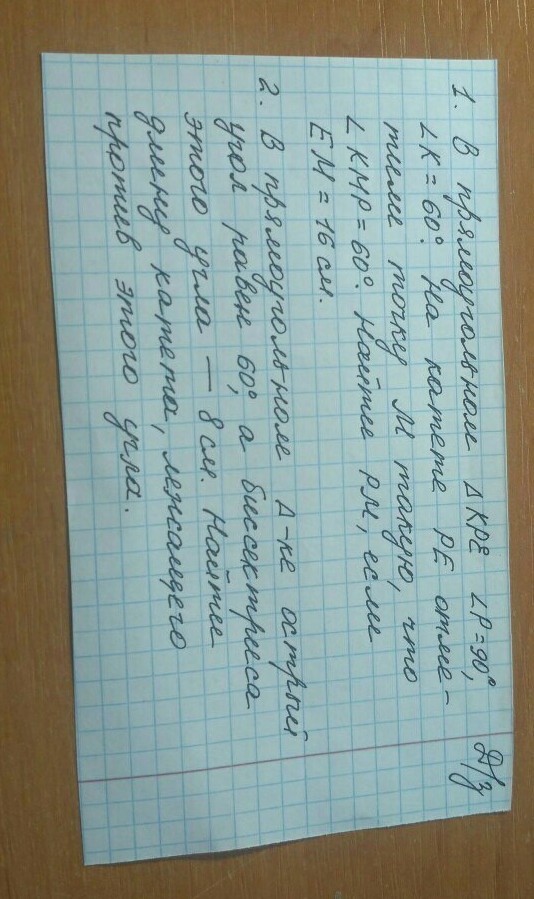 Д/з
1. В прямоугольном ΔKPE ∠P=90°,
∠K=60°. На катете PE отме-
тили точку M такую, что
∠KMP=60°. Найти PM, если
EM=16см.
2. В прямоугольном Δ-ке острый
угол равен 60°, а биссектриса
этого угла — 8см. Найти
длину катета, лежащего
против этого угла.